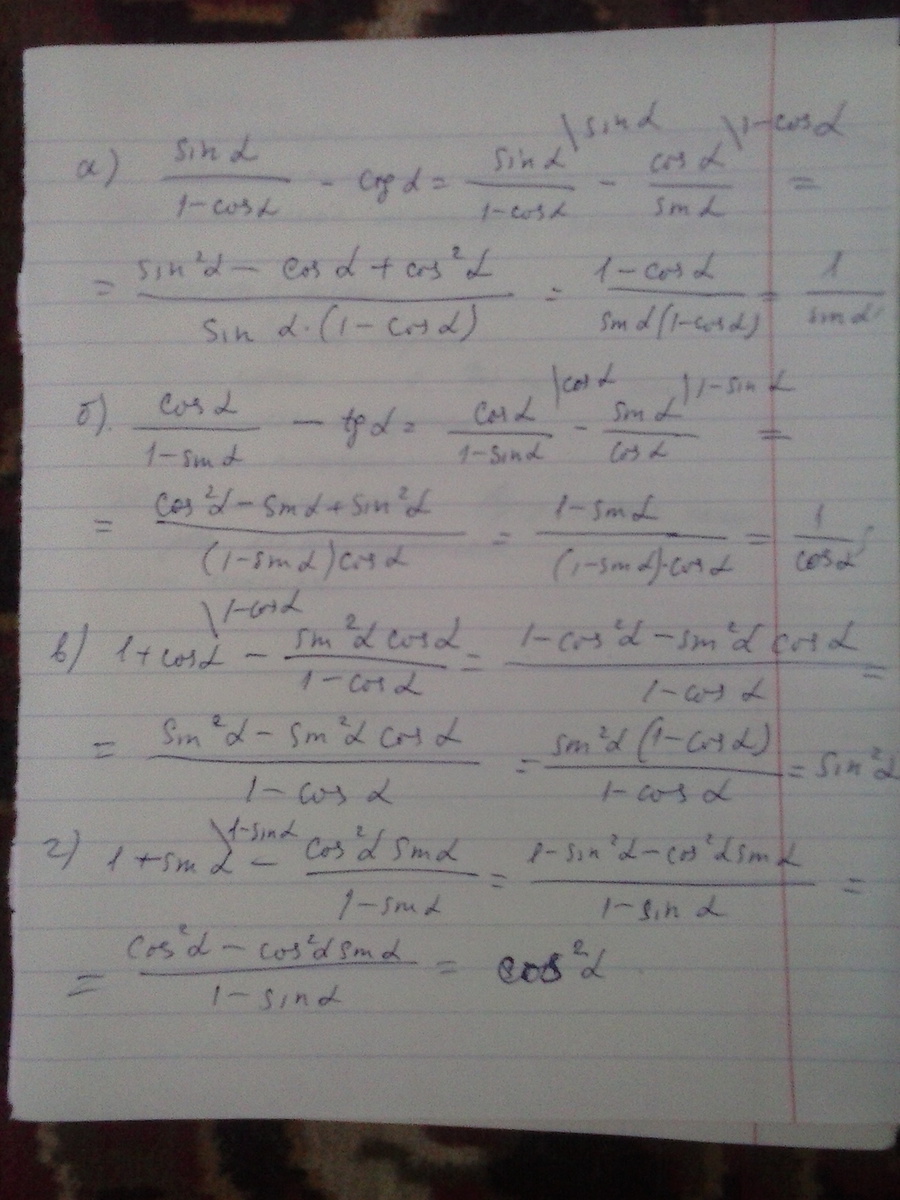 а) sinα/(1-cosα) - ctgα = sinα/(1-cosα) \sinα - cosα/sinα \1-cosα =
= (sin²α - cosα + cos²α)/(sinα·(1-cosα)) = (1-cosα)/(sinα(1-cosα)) = 1/sinα;
б). cosα/(1-sinα) - tgα = cosα/(1-sinα) \cosα - sinα/cosα \1-sinα =
= (cos²α - sinα + sin²α)/((1-sinα)cosα) = (1-sinα)/((1-sinα)·cosα) = 1/cosα;
в) 1+cosα \1-cosα - (sin²α cosα)/(1-cosα) = (1-cos²α - sin²α cosα)/(1-cosα) =
= (sin²α - sin²α cosα)/(1-cosα) = (sin²α (1-cosα))/(1-cosα) = sin²α
г) 1+sinα \1-sinα - (cos²α sinα)/(1-sinα) = (1-sin²α - cos²α sinα)/(1-sinα) =
= (cos²α - cos²α sinα)/(1-sinα) = cos²α.